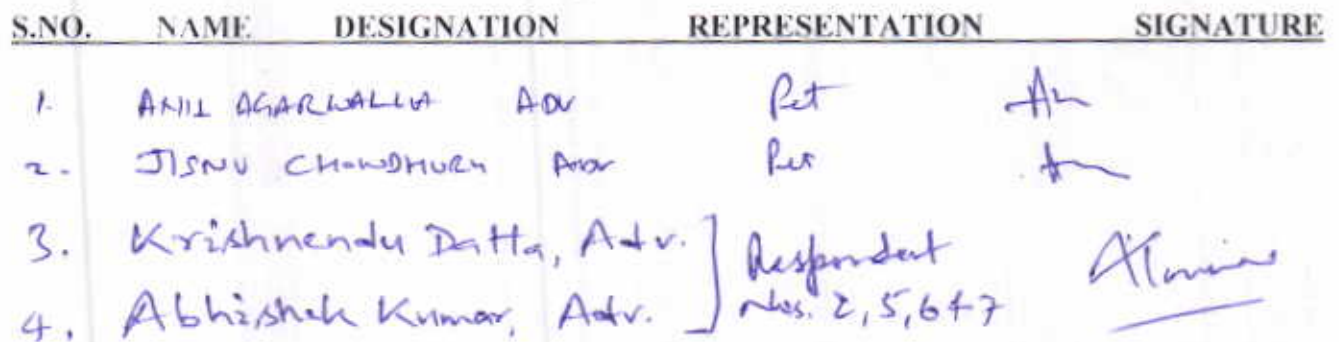 S.NO. NAME DESIGNATION REPRESENTATION SIGNATURE
1. ANIL AGARWALLA ADV Pet
2. JISNU CHOWDHURY Adv Pet
3. Krishnendu Datta, Adv. ] Respondent
4. Abhishek Kumar, Adv. ] Nos. 2, 5, 6 & 7